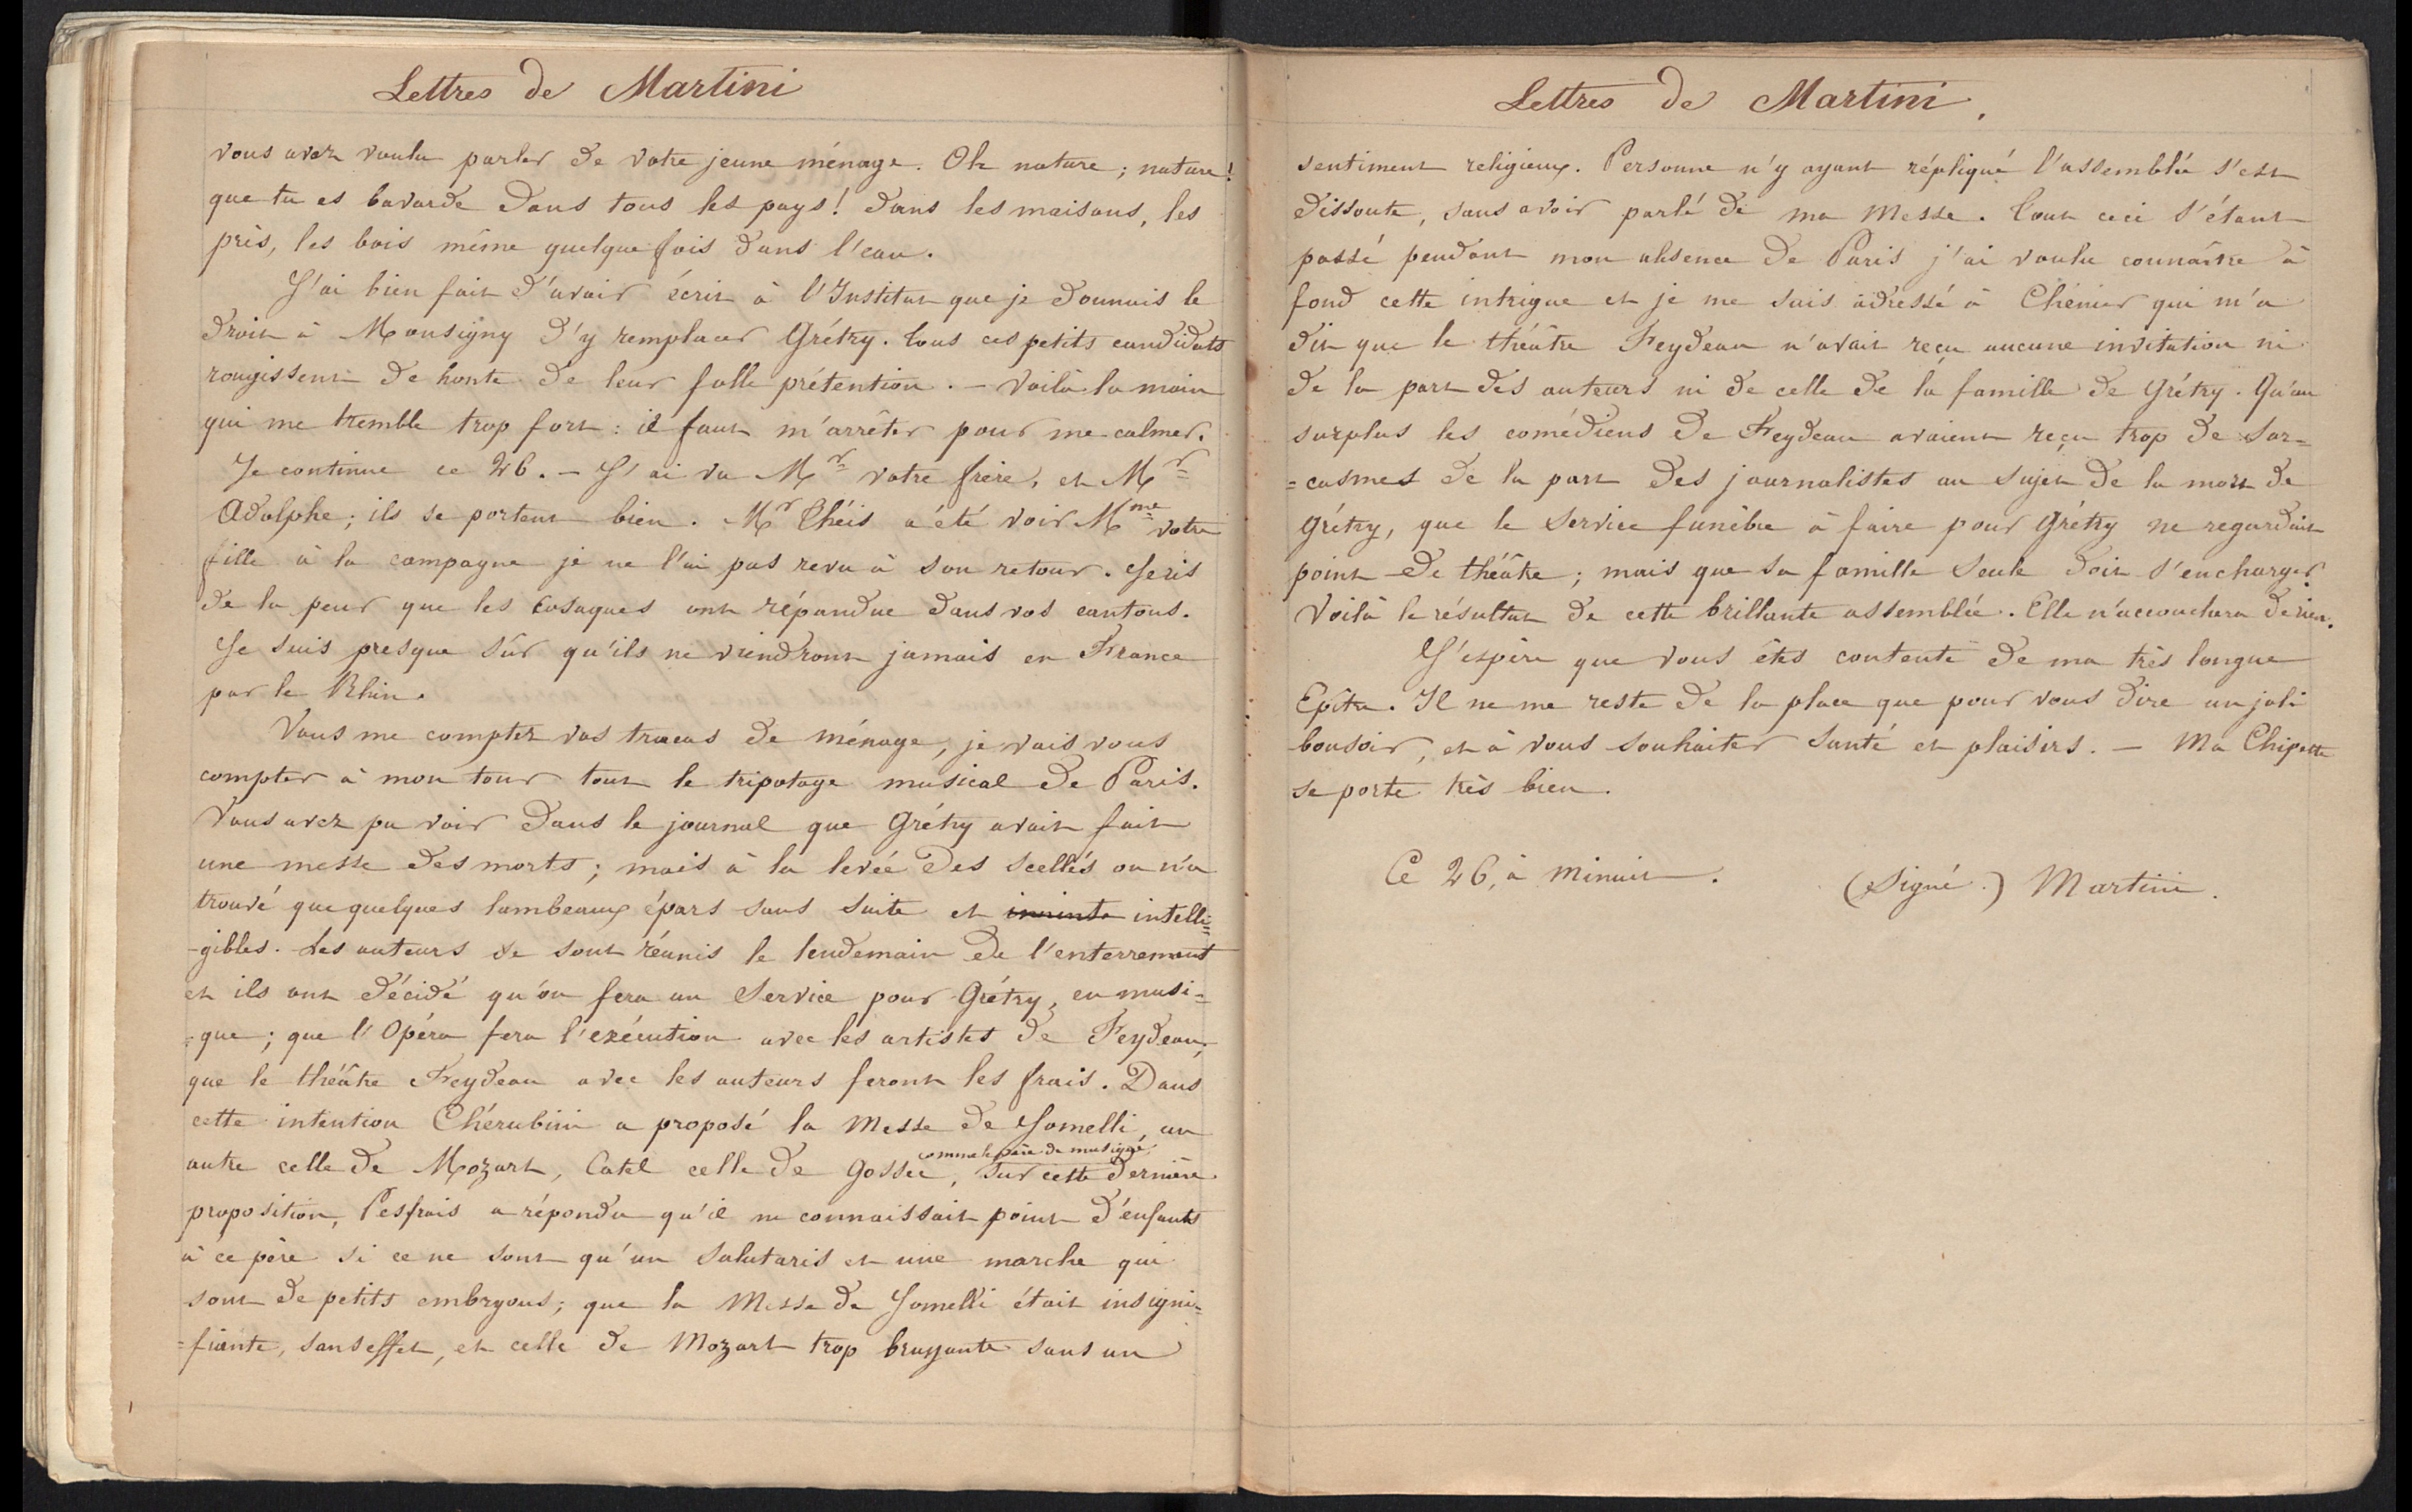 Lettres de Martini
vous avez voulu parler de votre jeune ménage. Oh nature ; nature !
que tu es bavarde dans tous les pays ! dans les maisons, les
près, les bois même quelque fois dans l'eau.
J'ai bien fait d'avoir écrit à l'Institut que je donnais le
droit à Monsigny d'y remplacer Grétry. Tous ces petits candidats
rougissent de honte de leur folle prétention. – Voilà la main
qui me tremble trop fort : il faut m'arrêter pour me calmer.
Je continue ce 26. – J'ai vu Mr votre frère, et Mr
Adolphe ; ils se portent bien. Mr Théis a été voir Mme votre
fille à la campagne je ne l'ai pas revu à son retour. Je ris
de la peur que les Cosaques ont répandue dans vos cantons.
Je suis presque sûr qu'ils ne viendront jamais en France
par le Rhin.
Vous me comptez vos tracas de ménage, je vais vous
compter à mon tour tout le tripotage musical de Paris.
Vous avez pu voir dans le journal que Grétry avait fait
une messe des morts ; mais à la levée des scellés on n'a
trouvé que quelques lambeaux épars sans suite et intelli=
-gibles. Les auteurs se sont réunis le lendemain de l'enterrement
et ils ont décidé qu'on fera un Service pour Grétry, en musi=
=que ; que l'Opéra fera l'exécution avec les artistes de Feydeau,
que le théâtre Feydeau avec les auteurs feront les frais. Dans
cette intention Chérubini a proposé la Messe de Jomelli, un
autre celle de Mozart, Catel celle de Gossec, comme le père de musique, sur cette dernière
proposition, Pesfrais a répondu qu'il ne connaissait point d'enfants
à ce père si ce ne sont qu'un Salutaris et une marche qui
sont de petits embryons ; que la Messe de Jomelli était insigni=
=fiante, sans effet, et celle de Mozart trop bruyante sans un
Lettres de Martini.
sentiment religieux. Personne n'y ayant répliqué l'assemblée s'est
dissoute, sans avoir parlé de ma Messe. Tout ceci s'étant
passé pendant mon absence de Paris j'ai voulu connaître à
fond cette intrigue et je me suis adressé à Chénier qui m'a
dit que le théâtre Feydeau n'avait reçu aucune invitation ni
de la part des auteurs ni de celle de la famille de Grétry. Qu'au
surplus les comédiens de Feydeau avaient reçu trop de Sar=
=casmes de la part des journalistes au sujet de la mort de
Grétry, que le Service funèbre à faire pour Grétry ne regardait
point de théâtre ; mais que sa famille seule doit s'en charger.
Voilà le résultat de cette brillante assemblée. Elle n'accouchera de rien.
J'espère que vous êtes contente de ma très longue
Epître. Il ne me reste de la place que pour vous dire un joli
bonsoir, et à vous souhaiter santé et plaisirs. – Ma Chipette
se porte très bien.
Ce 26, à minuit.
(Signé.) Martini.